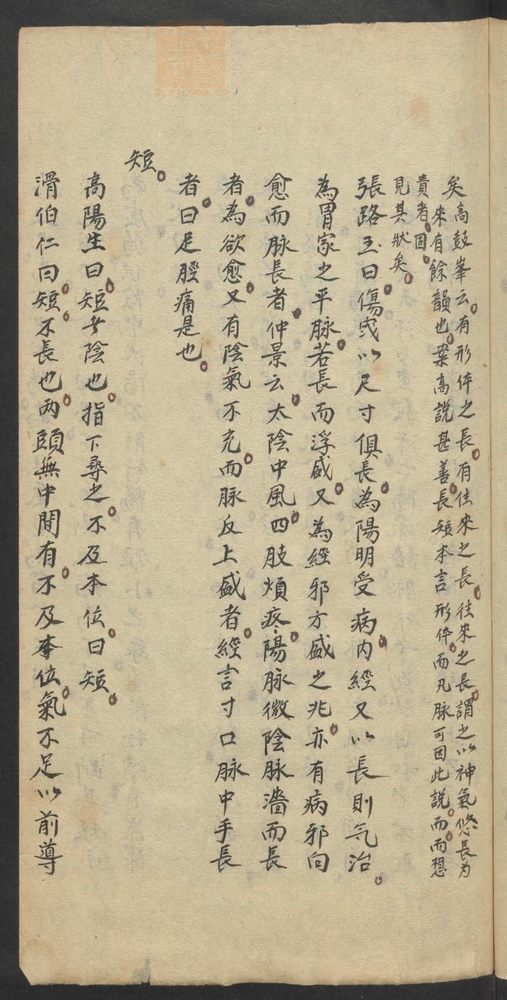 矣高鼓峯云有形体之長有往來之長往來之長謂之以神氣悠長為
貴者因來有餘韻也案高說甚善長短本言形体而凡脉可因此說而而想
見其狀矣
張路玉曰傷寒以尺寸俱長為陽明受病内經又以長則气治
為胃家之平脉若長而浮盛又為經邪方盛之兆亦有病邪向
愈而脉長者仲景云太陰中風四肢煩疼陽脉微陰脉濇而長
者為欲愈又有陰氣不充而脉反上盛者經言寸口脉中手長
者曰足脛痛是也
短
高陽生曰短者陰也指下尋之不及本位曰短
滑伯仁曰短不長也两頭無中間有不及本位氣不足以前導